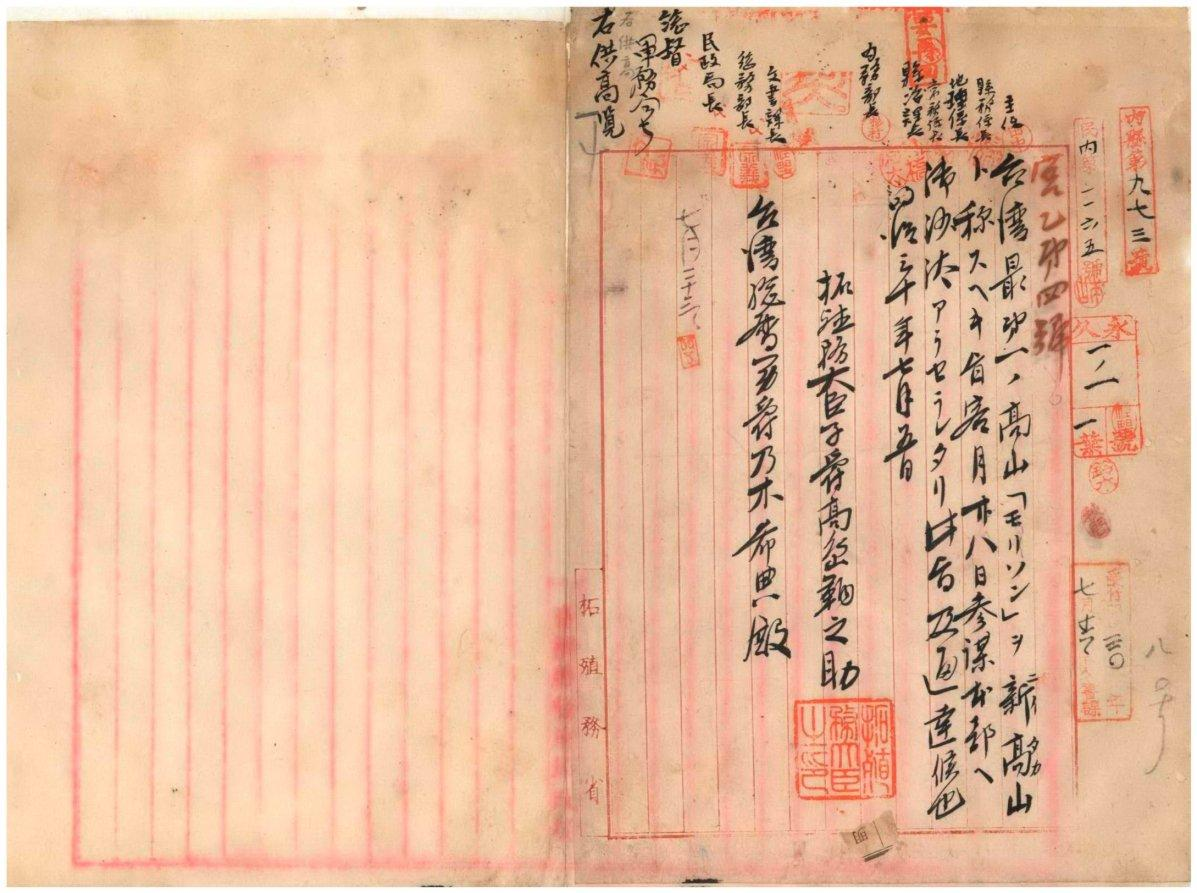 内務第九七三號
民内第一一六五號
永久
一ノ一
號
一
葉
七月
三〇年
八号
官乙第四號
台湾最第一ノ高山「モリソン」ヲ新高山
ニヒタカ
ト称スヘキ旨客月廿八日参謀本部ヘ
御沙汰アラセラレタリ此旨及通達候也
明治三十年七月五日
拓殖務大臣子爵高島鞆之助
拓殖務大臣之印
台湾総督男爵乃木希典殿
七月二十二日
主任
縣務係長
地理係長
縣治課長
内務部長
文書課長
総務部長
民政局長
総督
軍務局
右供高覧
右供高覧
拓殖務省